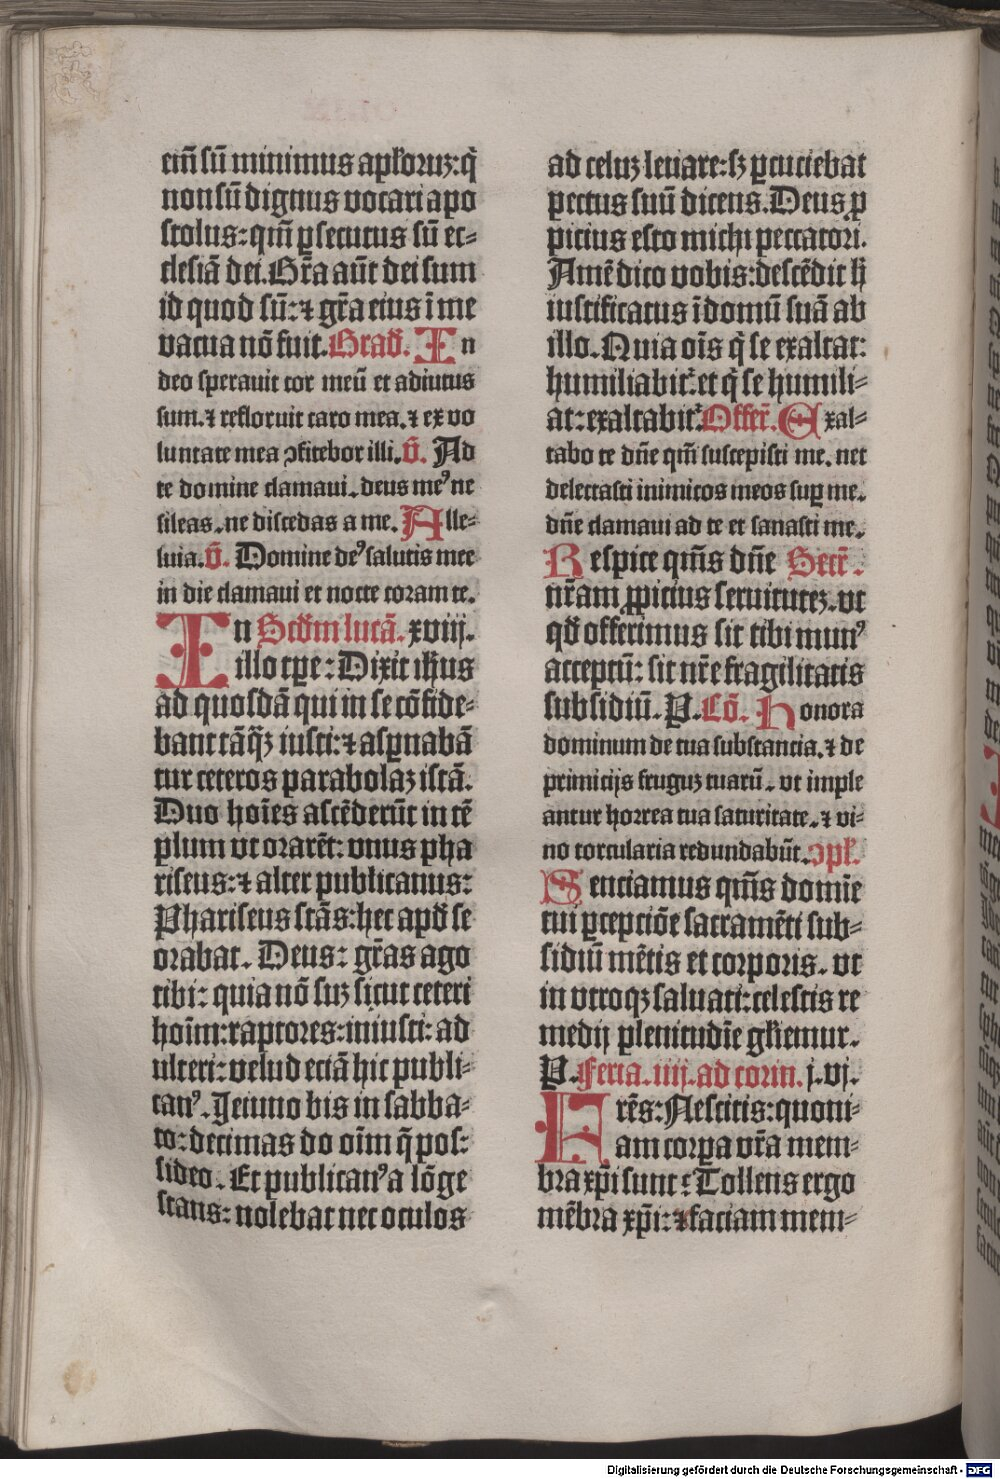 eim̄ sū minimus apl'oruz: q̄
non sū dignus vocari apo
stolus: qm̄ ꝑsecutus sū ec-
clesiā dei. Gr̄a aūt dei sum
id quod sū: ⁊ gr̄a eius ī me
vacua nō fuit. Grad̄. In
deo sperauit cor meū et adiutus
sum. ⁊ refloruit caro mea. ⁊ ex vo
luntate mea ↄfitebor illi. V̄. Ad
te domine clamaui. deus meꝰ ne
sileas. ne discedas a me. Alle-
luia. V̄. Domine deꝰ salutis mee
in die clamaui et nocte coram te.
In Scd̄m lucā. xviij.
illo tꝑe: Dixit ih̄us
ad quosdā qui in se cōfide-
bant tāq̄ꝫ iusti: ⁊ aspnabā
tur ceteros parabolaz istā.
Duo hoīes ascēderūt in tē
plum vt orarēt: vnus pha
riseus: ⁊ alter publicanus:
Phariseus stās: hec apd̄ se
orabat. Deus: gr̄as ago
tibi: quia nō suz sicut ceteri
hoīm: raptores: iniusti: ad
ulteri: velud eciā hic publi-
canꝰ. Jeiuno bis in sabba-
to: decimas do oīm q̄ pos-
sideo. Et publicanꝰ a lōge
stans: nolebat nec oculos
ad celuz leuare: sꝫ ꝑcuciebat
pectus suū dicens. Deus ꝓ
picius esto michi peccatori.
Amē dico vobis: descēdit h̄
iustificatus ī domū suā ab
illo. Quia oīs q̄ se exaltat:
humiliabit᷑: et q̄ se humili-
at: exaltabit᷑. Offer̄. Exal-
tabo te dn̄e qm̄ suscepisti me. nec
delectasti inimicos meos suꝑ me.
dn̄e clamaui ad te et sanasti me.
Respice qm̄s dn̄e Secr̄.
nr̄am ꝓpicius seruitutez. vt
qd̄ offerimus sit tibi munꝰ
acceptū: sit nr̄e fragilitatis
subsidiū. P. Cō. Honora
dominum de tua substancia. ⁊ de
primicijs fruguz tuarū. vt imple
antur horrea tua saturitate. ⁊ vi-
no torcularia redundabūt. ↄpl'.
Senciamus qm̄s domīe
tui ꝑcepciōe sacramēti sub-
sidiū mētis et corporis. vt
in vtroqꝫ saluati: celestis re
medij plenitudīe gl'iemur.
P. Feria. iiij. ad corin. j. vj.
Frēs: Nescitis: quoni-
am corꝑa vr̄a mem-
bra xp̄i sunt: Tollens ergo
mēbra xp̄i: ⁊ faciam mem-
Digitalisierung gefördert durch die Deutsche Forschungsgemeinschaft - DFG